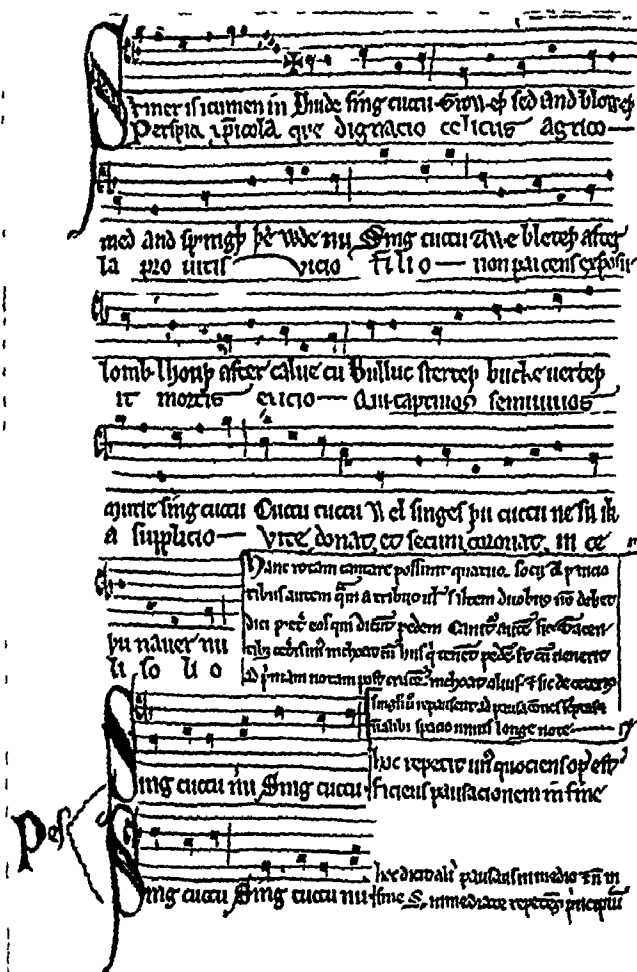 Sumer is icumen in Lhude sing cuccu Groweþ sed and bloweþ
Perspice xp̄icola que dignacio celicus agrico
med and springþ þe wde nu Sing cuccu Awe bleteþ after
la pro uitis vicio filio non parcens exposu
lomb lhouþ after calue cu Bulluc sterteþ bucke uerteþ
it mortis exicio Qui captiuos semiuiuos
murie sing cuccu Cuccu cuccu Wel singes þu cuccu ne swik
a supplicio vite donat et secum coronat in ce
þu nauer nu
li solio
Hanc rotam cantare possunt quatuor socij A paucio
ribus autem quam a tribus uel saltem duobus non debet
dici preter eos qui dicunt pedem Canitur autem sic Tacen
tibus ceteris unus inchoat cum hiis qui tenent pedem Et cum uenerit
ad primam notam post crucem inchoat alius et sic de ceteris
singuli uero repausent ad pausaciones scriptas et
non alibi spacio unius longe note
Sing cuccu nu Sing cuccu
hoc repetit unus quociens opus est
faciens pausacionem in fine
Pes
Sing cuccu Sing cuccu nu
hoc dicit alius pausans in medio et non in
fine Set immediate repetens principium